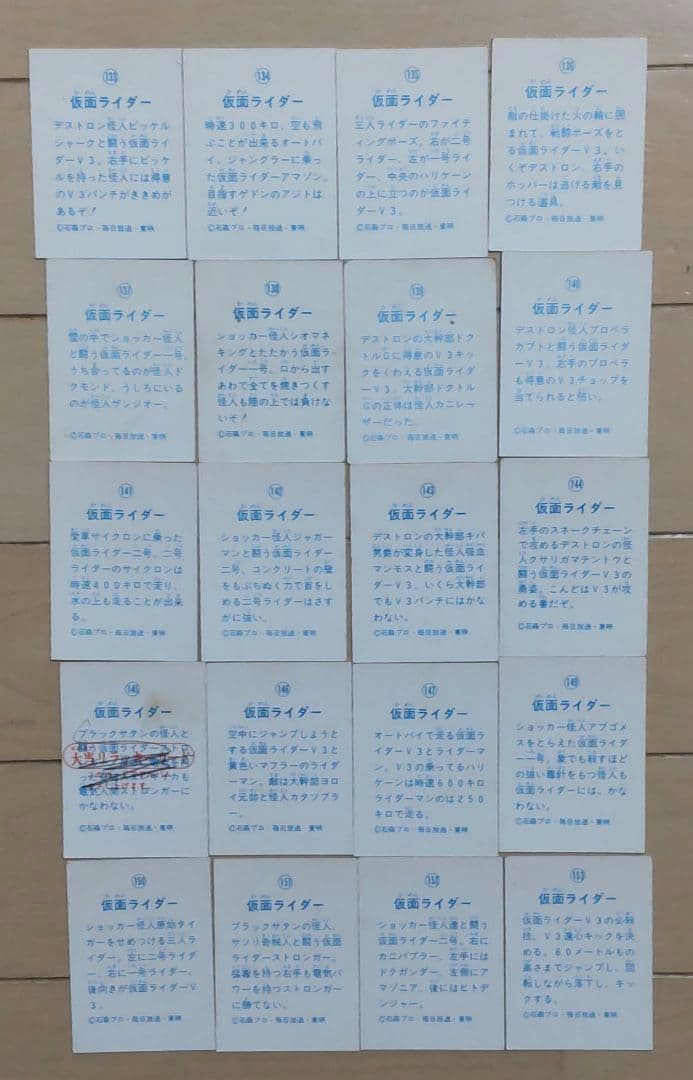 133
仮面ライダー
デストロン怪人ピッケル
シャークと闘う仮面ライ
ダーV3。右手にピッケ
ルを持った怪人には得意
のV3パンチがききめが
あるぞ!
©石森プロ・毎日放送・東映
134
仮面ライダー
時速300キロ、空も飛
ぶことが出来るオートバ
イ、ジャングラーに乗っ
た仮面ライダーアマゾン。
目指すゲドンのアジトは
近いぞ!
©石森プロ・毎日放送・東映
135
仮面ライダー
三人ライダーのファイテ
ィングポーズ。右が二号
ライダー、左が一号ライ
ダー、中央のハリケーン
の上に立つのが仮面ライ
ダーV3。
©石森プロ・毎日放送・東映
136
仮面ライダー
敵の仕掛けた火の輪に囲
まれて、戦闘ポーズをと
る仮面ライダーV3。い
くぞデストロン。右手の
ホッパーは逃げる敵を見
つける道具。
©石森プロ・毎日放送・東映
137
仮面ライダー
雪の中でショッカー怪人
と闘う仮面ライダー一号。
うち合ってるのが怪人ド
クモンド。うしろにいる
のが怪人ザンジオー。
©石森プロ・毎日放送・東映
138
仮面ライダー
ショッカー怪人シオマネ
キングとたたかう仮面ラ
イダー一号。口から出す
あわで全てを焼きつくす
怪人も陸の上では負けな
いぞ!
©石森プロ・毎日放送・東映
139
仮面ライダー
デストロンの大幹部ドク
トルGに得意のV3キッ
クをくわえる仮面ライダ
ーV3。大幹部ドクトル
Gの正体は怪人カニレー
ザーだった。
©石森プロ・毎日放送・東映
140
仮面ライダー
デストロン怪人プロペラ
カブトと闘う仮面ライダ
ーV3。右手のプロペラ
も得意のV3チョップを
当てられると弱い。
©石森プロ・毎日放送・東映
141
仮面ライダー
愛車サイクロンに乗った
仮面ライダー二号。二号
ライダーのサイクロンは
時速400キロで走り、
水の上も走ることが出来
る。
©石森プロ・毎日放送・東映
142
仮面ライダー
ショッカー怪人ジャガー
マンと闘う仮面ライダー
二号。コンクリートの壁
をもぶちぬく力で首をし
める二号ライダーはさす
がに強い。
©石森プロ・毎日放送・東映
143
仮面ライダー
デストロンの大幹部キバ
男爵が変身した怪人吸血
マンモスと闘う仮面ライ
ダーV3。いくら大幹部
でもV3パンチにはかな
わない。
©石森プロ・毎日放送・東映
144
仮面ライダー
左手のスネークチェーン
で攻めるデストロンの怪
人クサリガマテントウと
闘う仮面ライダーV3の
勇姿。こんどはV3が攻
める番だぞ。
©石森プロ・毎日放送・東映
145
仮面ライダー
ブラックサタンの怪人と
大当り
電気人間ストロンガーに
かなわない。
©石森プロ・毎日放送・東映
146
仮面ライダー
空中にジャンプしようと
する仮面ライダーV3と
黄色いマフラーのライダ
ーマン。敵は大幹部ヨロ
イ元帥と怪人カタツブラ
ー。
©石森プロ・毎日放送・東映
147
仮面ライダー
オートバイで走る仮面ラ
イダーV3とライダーマ
ン。V3の乗ってるハリ
ケーンは時速600キロ
ライダーマンのは250
キロで走る。
©石森プロ・毎日放送・東映
149
仮面ライダー
ショッカー怪人アブゴメ
スをとらえた仮面ライダ
ー一号。象でも殺すほど
の強い毒針をもつ怪人も
仮面ライダーには、かな
わない。
©石森プロ・毎日放送・東映
150
仮面ライダー
ショッカー怪人原始タイ
ガーをせめつける三人ラ
イダー。左に二号ライダ
ー、右に一号ライダー、
後向きが仮面ライダーV
3。
©石森プロ・毎日放送・東映
151
仮面ライダー
ブラックサタンの怪人、
サソリ奇械人と闘う仮面
ライダーストロンガー。
猛毒を持つ右手も電気パ
ワーを持つストロンガー
に勝てない。
©石森プロ・毎日放送・東映
152
仮面ライダー
ショッカー怪人達と闘う
仮面ライダー二号。右に
カニバブラー、左手には
ドクガンダー、左側にア
マゾニア、後にはヒトデ
ンジャー。
©石森プロ・毎日放送・東映
153
仮面ライダー
仮面ライダーV3の必殺
技、V3遠心キックを決
める。60メートルもの
高さまでジャンプし、回
転しながら落下し、キッ
クする。
©石森プロ・毎日放送・東映